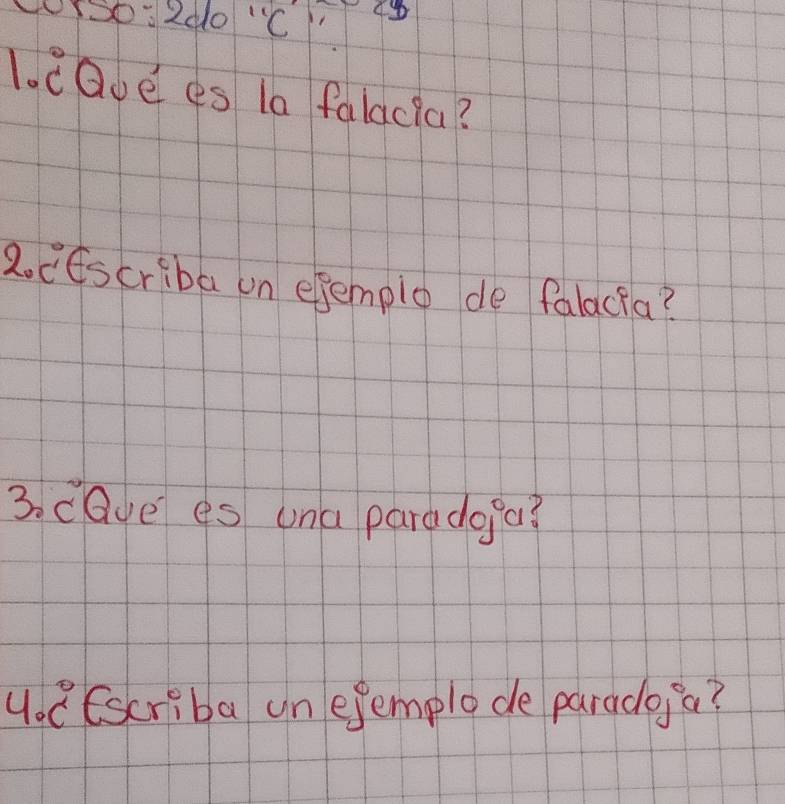 Curso: 2do "C"
1. ¿Qué es la falacia?
2. ¿Escriba un ejemplo de falacia?
3. ¿Qué es una paradoja?
4. ¿Escriba un ejemplo de paradoja?